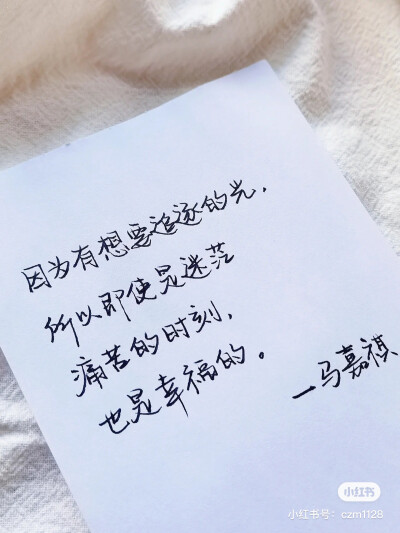 因为有想要追逐的光，
所以即使是迷茫
痛苦的时刻，
也是幸福的。
—马嘉祺
小红书
小红书号：czm1128